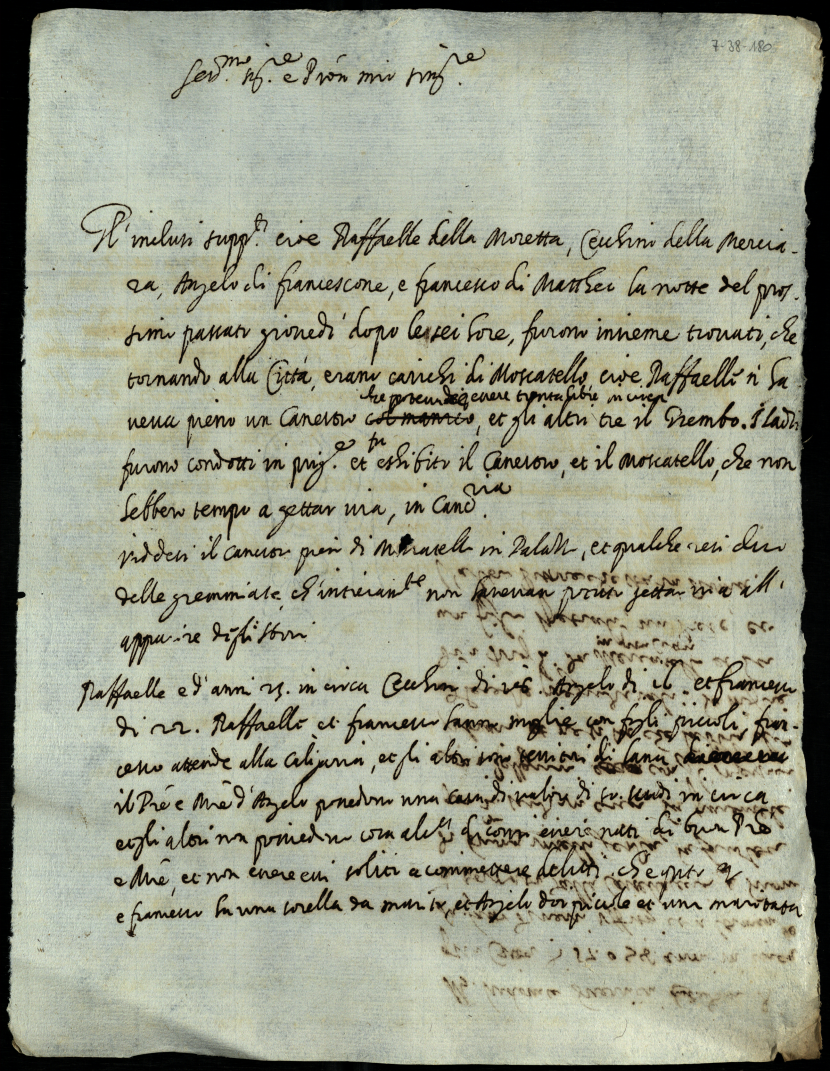 7-38-180
Ser.mo sig.re e Pron mio sing.re
Gl'inclusi supp.ti cioe Raffaelle della Moretta, Cecchino della Mercia-
ra, Angelo di francescone, e francesco di Mattheo la notte del pros-
simo passato giovedi dopo le sei hore, furono insieme trovati, che
tornando alla Città, erano carichi di Moscatello, cioe Raffaelle n'ha-
che poteva essere trenta libre in circa
veva pieno un Canestro col manico, et gli altri tre il Grembo. I ladri
furono condotti in prig.e et fu exhibito il Canestro, et il Moscatello, che non
hebbero tempo a gettar via, in Canc.ria
viddesi il canestro pien di Moscatello in Palazzo, et qualche resi duo
delle gremmiate, ch'intieram.te non havevan potuti gettar via all'
apparire degli sbirri
Raffaelle e d'anni 25. in circa Cecchino di 26 Angelo di 21 et francesco
di 22. Raffaelle et francesco hanno moglie con figli piccioli, fran-
cesco attende alla Calzaria, et gli altri son di
il Prē e Mrē d'Angelo possedono una casa di valor di scudi in circa
et gli altri non possiedono cosa alc.a essere nati di buon Prē
e Mrē, et non essere essi soliti a commettere delitti, che
e francesco ha una sorella da marito, et Angelo doi piccole et una maritata